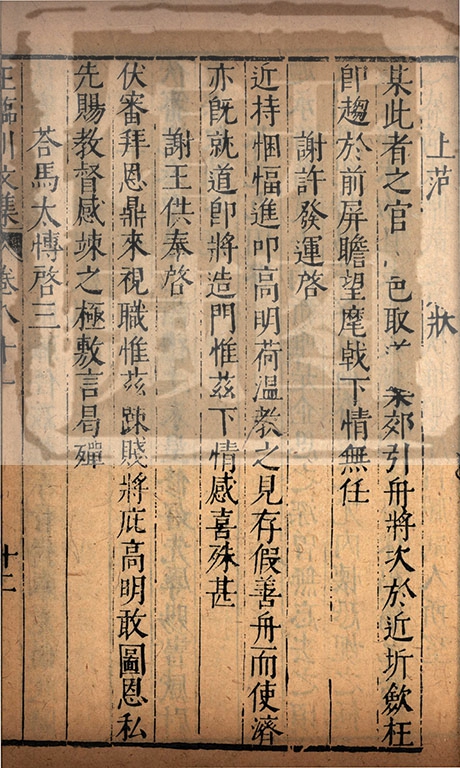 上范 狀
某此者之官 邑取 郊引舟將次於近圻歛枉
卽趨於前屏瞻望麾戟下情無任
謝許發運啓
近持悃愊進叩高明荷溫教之見存假善舟而使濟
亦旣就道卽將造門惟茲下情感喜殊甚
謝王供奉啓
伏審拜恩鼎來視職惟茲踈賤將庇高明敢圖恩私
先賜教督感竦之極敷言曷殫
荅馬太慱啓三
王臨川文集 卷八十一 十二